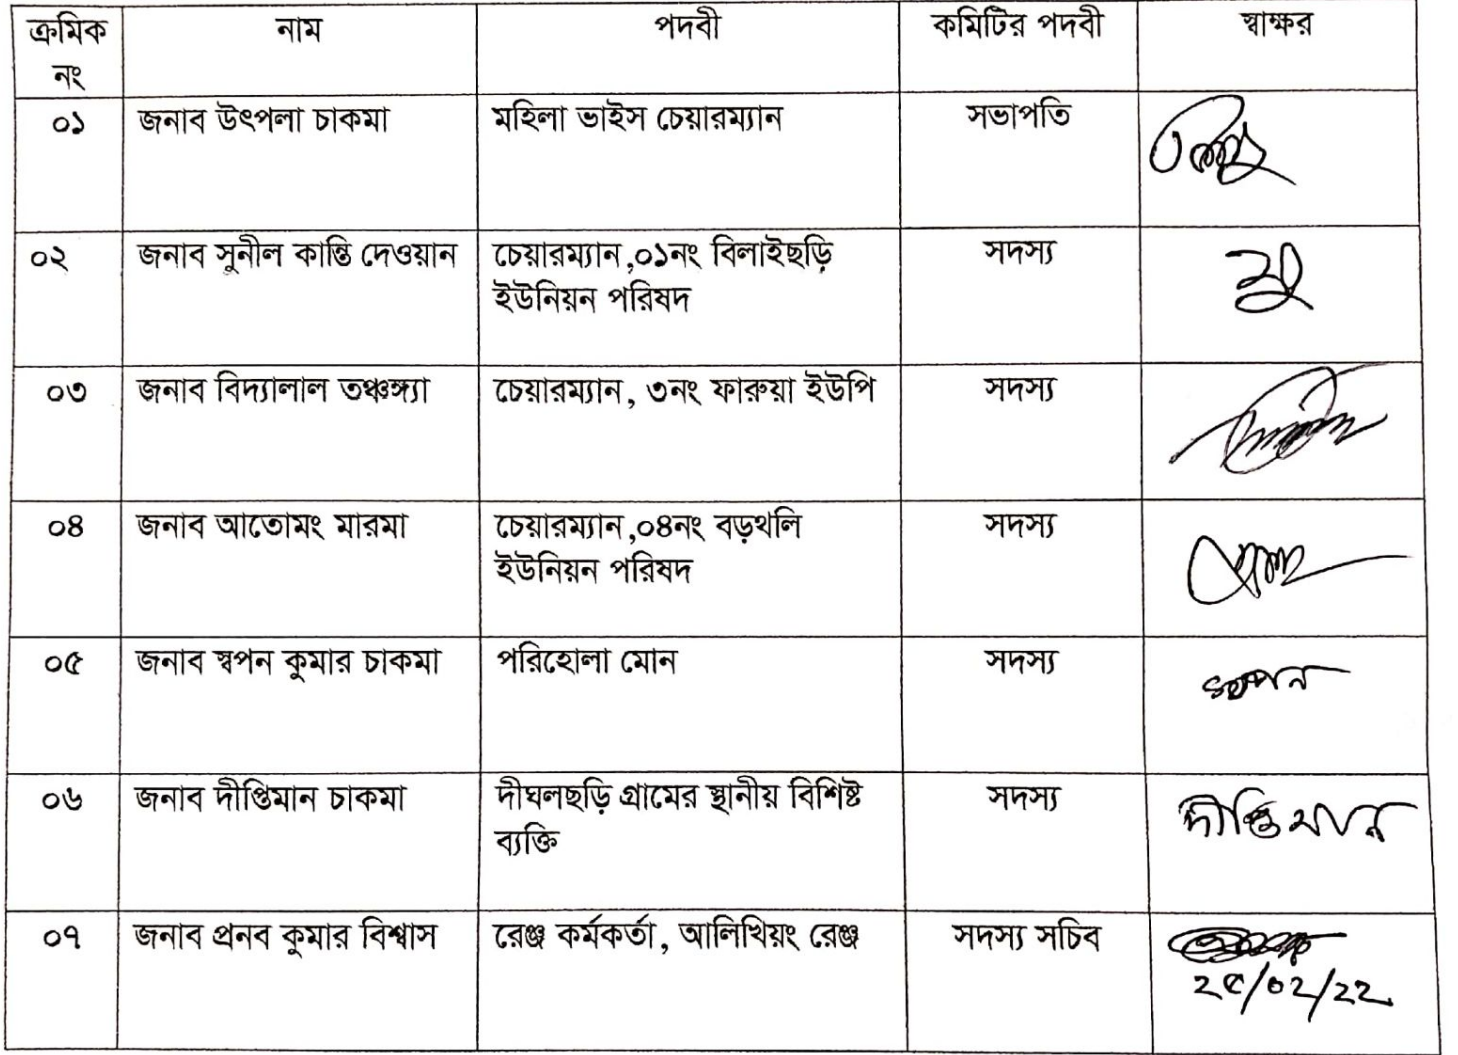 ক্রমিক নং	নাম	পদবী	কমিটির পদবী	স্বাক্ষর
০১	জনাব উৎপলা চাকমা	মহিলা ভাইস চেয়ারম্যান	সভাপতি
০২	জনাব সুনীল কান্তি দেওয়ান	চেয়ারম্যান,০১নং বিলাইছড়ি
ইউনিয়ন পরিষদ	সদস্য
০৩	জনাব বিদ্যালাল তঞ্চঙ্গ্যা	চেয়ারম্যান, ৩নং ফারুয়া ইউপি	সদস্য
০৪	জনাব আতোমং মারমা	চেয়ারম্যান,০৪নং বড়থলি
ইউনিয়ন পরিষদ	সদস্য
০৫	জনাব স্বপন কুমার চাকমা	পরিহোলা মোন	সদস্য	স্বপন
০৬	জনাব দীপ্তিমান চাকমা	দীঘলছড়ি গ্রামের স্থানীয় বিশিষ্ট
ব্যক্তি	সদস্য	দীপ্তিমান
০৭	জনাব প্রনব কুমার বিশ্বাস	রেঞ্জ কর্মকর্তা, আলিখিয়ং রেঞ্জ	সদস্য সচিব
২৫/০২/২২